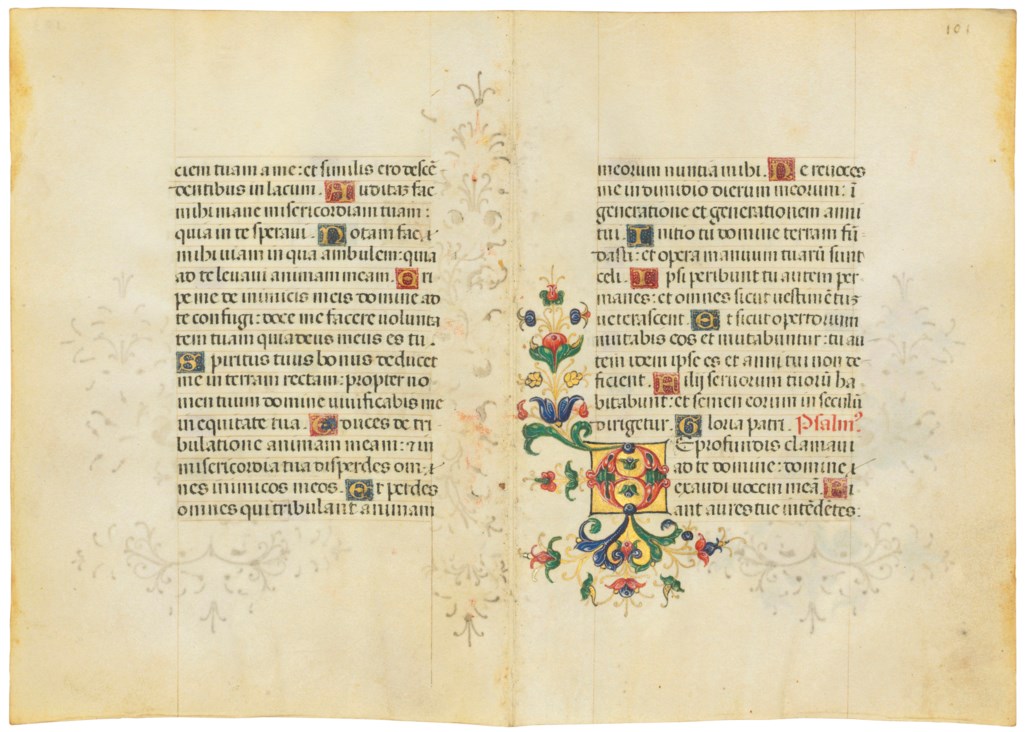 ciem tuam a me: et similis ero descē
dentibus in lacum. Auditam fac
mihi mane misericordiam tuam:
quia in te speravi. Notam fac
mihi viam in qua ambulem: quia
ad te levavi animam meam. Eri
pe me de inimicis meis domine ad
te confugi: doce me facere volunta
tem tuam quia deus meus es tu.
Spiritus tuus bonus deducet
me in terram rectam: propter no
men tuum domine vivificabis me
in equitate tua. Educes de tri
bulatione animam meam: et in
misericordia tua disperdes om
nes inimicos meos. Et perdes
omnes qui tribulant animam
101
meorum nuntia mihi. Ne revoces
me in dimidio dierum meorum: ī
generatione et generationem anni
tui. Initio tu domine terram fū
dasti: et opera manuum tuarū sunt
celi. Ipsi peribunt tu autem per
manes: et omnes sicut vestimētum
veterascent. Et sicut opertorium
mutabis eos et mutabuntur: tu au
tem idem ipse es et anni tui non de
ficient. Filij servorum tuorū ha
bitabunt: et semen eorum in seculū
dirigetur. Gloria patri. Psalmꝰ
De profundis clamavi
ad te domine: domine
exaudi vocem meā. Fi
ant aures tue intēdētes: